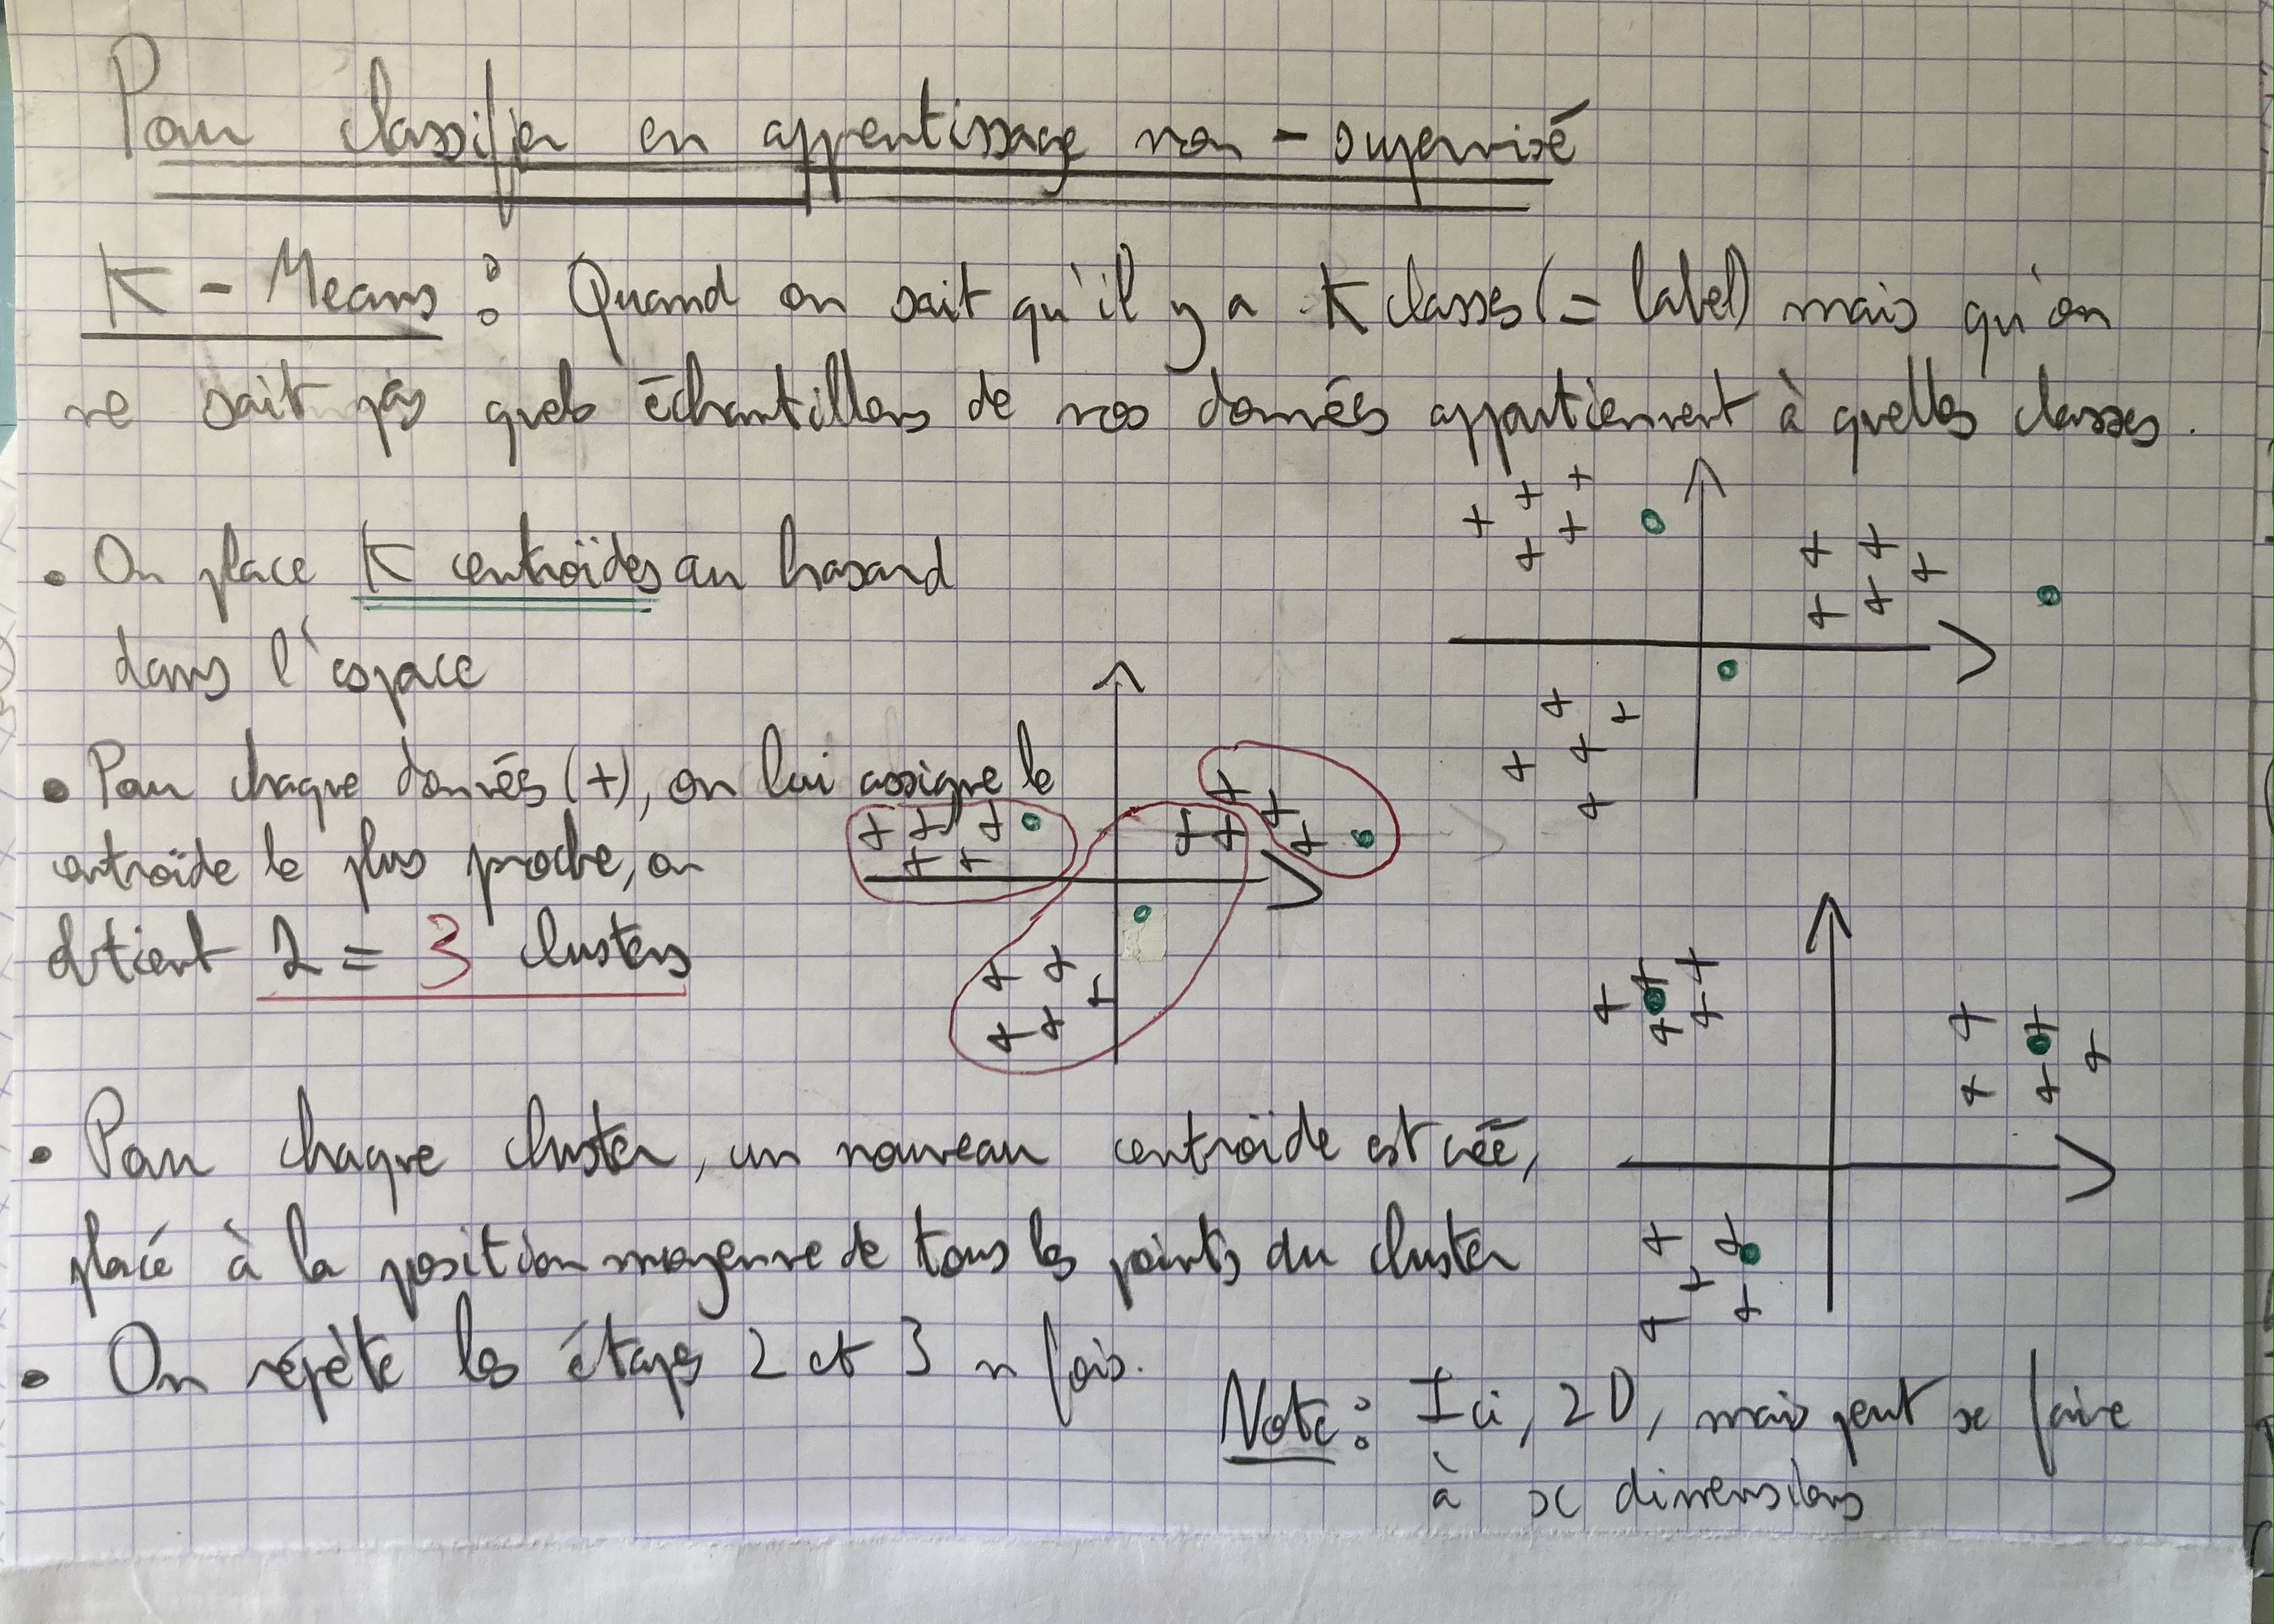 Pour classifier en apprentissage non-supervisé
K-Means : Quand on sait qu'il y a K classes (= label) mais qu'on
ne sait pas quels échantillons de nos données appartiennent à quelles classes.
• On place K centroïdes au hasard
dans l'espace
• Pour chaque données (+), on lui assigne le
centroïde le plus proche, on
obtient 2 = 3 clusters
• Pour chaque cluster, un nouveau centroïde est créé,
placé à la position moyenne de tous les points du cluster
• On répète les étapes 2 et 3 n fois.
Note : Ici, 2D, mais peut se faire
à x dimensions